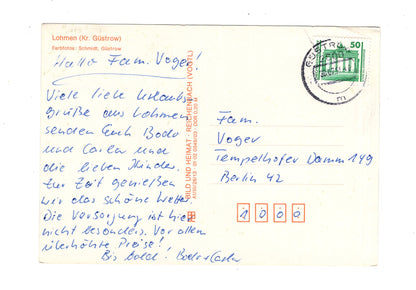 Lohmen (Kr. Güstrow)
Farbfotos: Schmidt, Güstrow
Hallo Fam. Voger!
Viele liebe Urlaubs-
grüße aus Lohmen
senden Euch Bodo
und Carla und
die lieben Kinder.
Zur Zeit genießen
wir das schöne Wetter.
Die Versorgung ist hier
nicht besonders. Vor allem
überhöhte Preise!
Bis bald! Bodo + Carla
BILD UND HEIMAT · REICHENBACH (VOGTL)
50
GÜSTROW
Fam.
Voger
Tempelhofer Damm 149
Berlin 42
1000